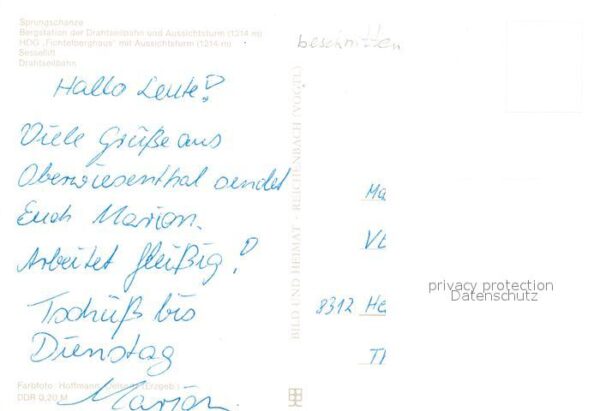 Sprungschanze
Bergstation der Drahtseilbahn und Aussichtsturm (1214 m)
HOG „Fichtelberghaus" mit Aussichtsturm (1214 m)
Sessellift
Drahtseilbahn
Hallo Leute!
Viele Grüße aus
Oberwiesenthal sendet
Euch Marion.
Arbeitet fleißig!
Tschüß bis
Dienstag
Marion
Farbfoto: Hoffmann, (Erzgeb.)
DDR 0,20 M
BILD UND HEIMAT · REICHENBACH (VOGTL)
beschnitten
Ma
VE
8312 He
Th
privacy protection
Datenschutz